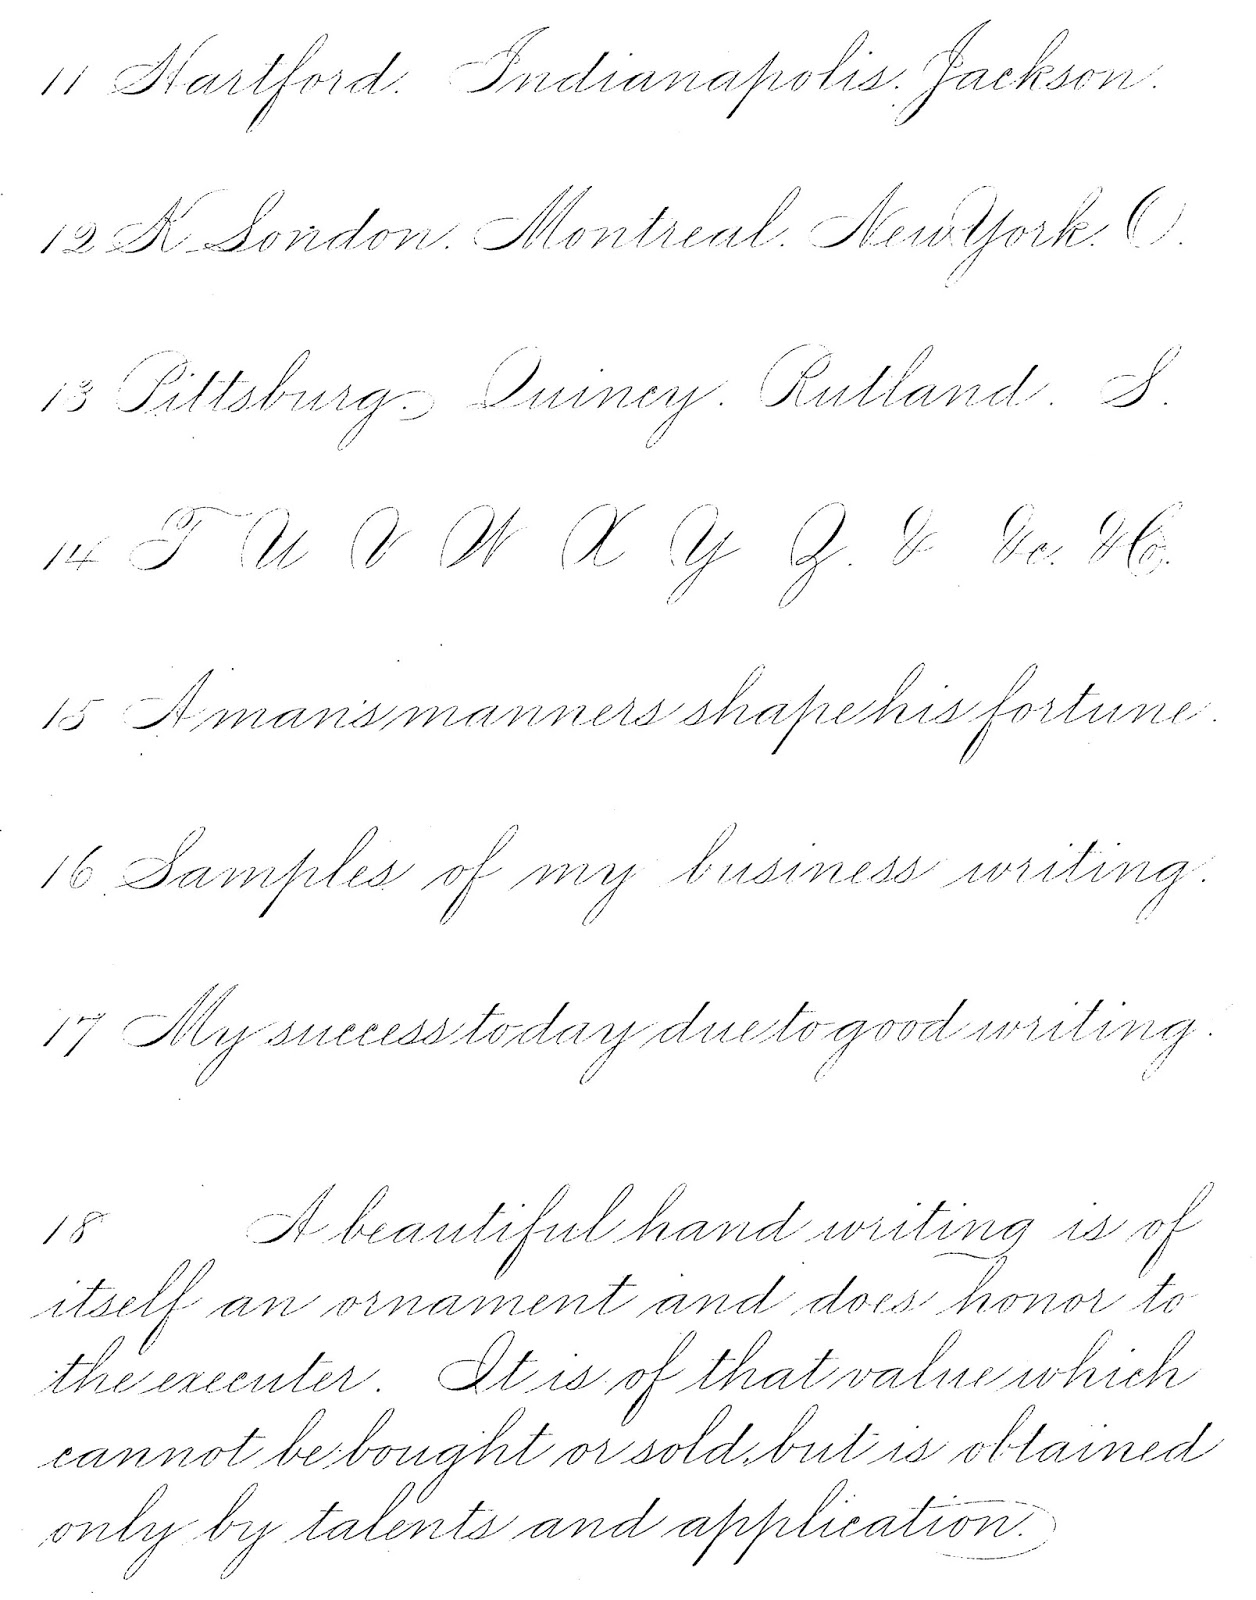 11 Hartford. Indianapolis. Jackson.
12 K London. Montreal. New York. O.
13 Pittsburg. Quincy. Rutland. S.
14 T U V W X Y Z. & &c. &Co.
15 A man's manners shape his fortune.
16 Samples of my business writing.
17 My success today due to good writing.
18 A beautiful hand writing is of
itself an ornament and does honor to
the executer. It is of that value which
cannot be bought or sold, but is obtained
only by talents and application.